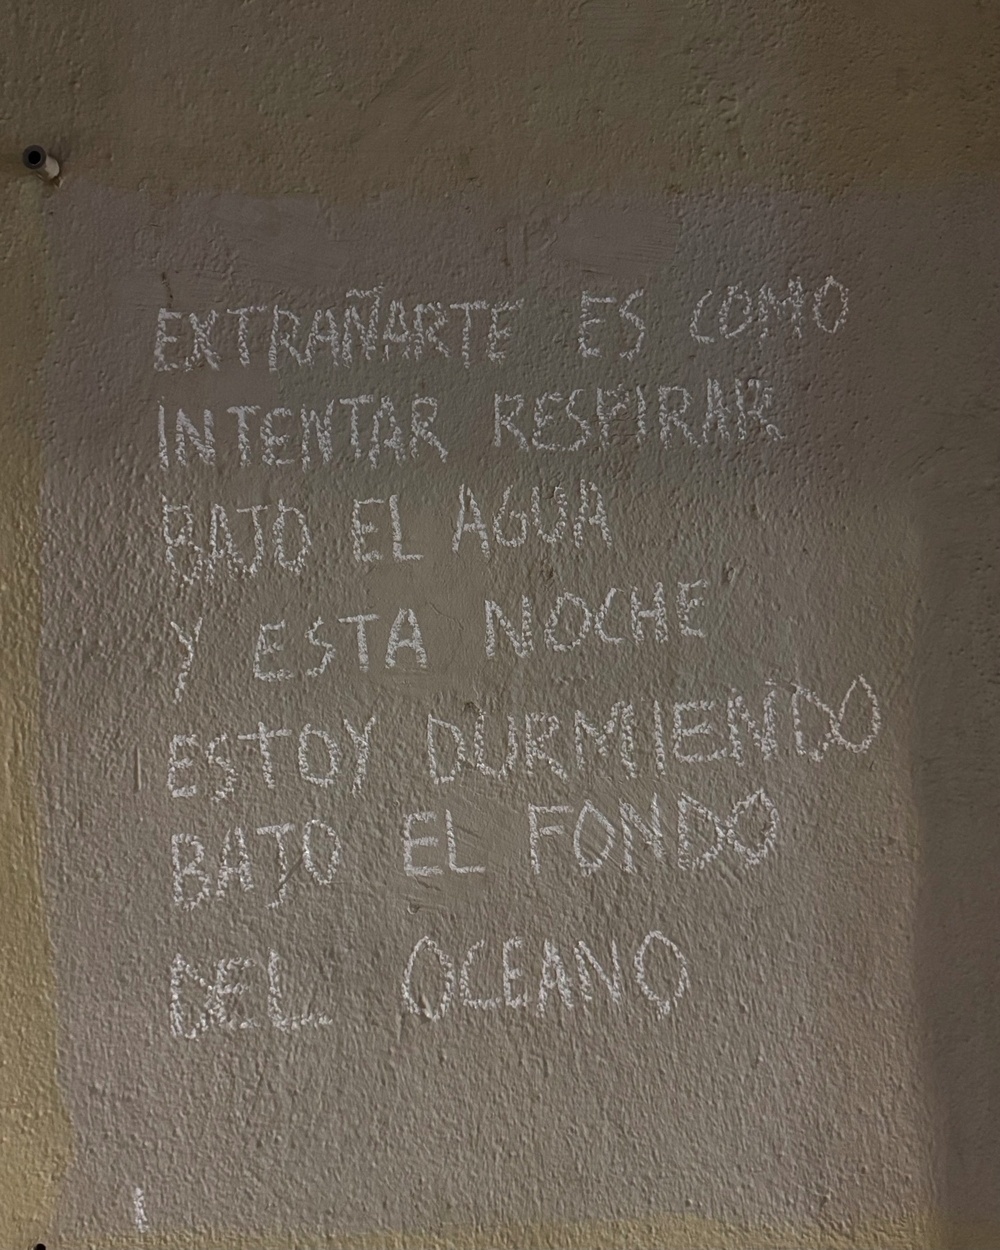 EXTRAÑARTE ES COMO
INTENTAR RESPIRAR
BAJO EL AGUA
Y ESTA NOCHE
ESTOY DURMIENDO
BAJO EL FONDO
DEL OCEANO